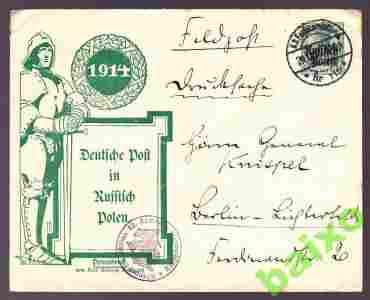 Feldpost
Drucksache
1914
Deutsche Post
in
Russisch
Polen
Russisch
Polen
Herrn General
Knispel
Berlin-Lichterfelde
Ferdinandstr 2
baixo